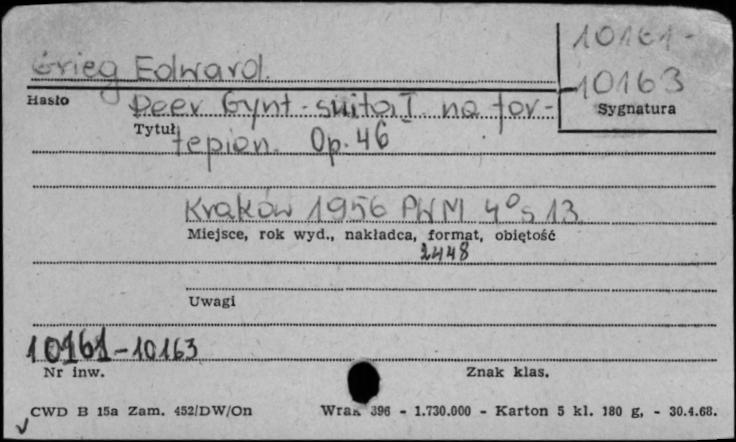 10161-
Grieg Edward.
10163
Hasło
Sygnatura
Peer Gynt - suita I na for-
Tytuł
tepian. Op. 46
Kraków 1956 PWM 4° s 13
Miejsce, rok wyd., nakładca, format, objętość
2448
Uwagi
10161-10163
Nr inw.
Znak klas.
CWD B 15a Zam. 452/DW/On
396 - 1.730.000 - Karton 5 kl. 180 g, - 30.4.68.